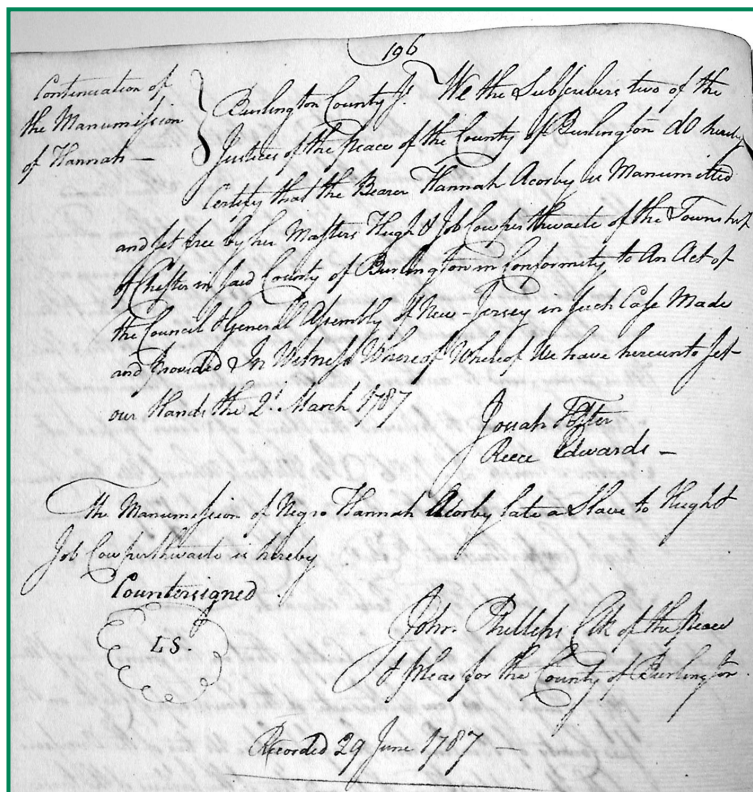 196
Continuation of
the Manumission
of Hannah —
Burlington County Ss. We the Subscribers two of the
Justices of the Peace of the County of Burlington do hereby
Certify that the Bearer Hannah Acorby is Manumitted
and set free by her Masters Hugh & Job Cowperthwaite of the Township
of Chester in said County of Burlington in Conformity to An Act of
the Council & General Assembly of New-Jersey in such Case Made
and Provided & In Witness Whereof Whereof We have hereunto set
our Hands the 2d. March 1787
Josiah Foster
Reece Edwards —
The Manumission of Negro Hannah Acorby late a Slave to Hugh &
Job Cowperthwaite is hereby
Countersigned
L S.
John Phillips Clk of the Peace
& pleas for the County of Burlington.
Recorded 29 June 1787 —